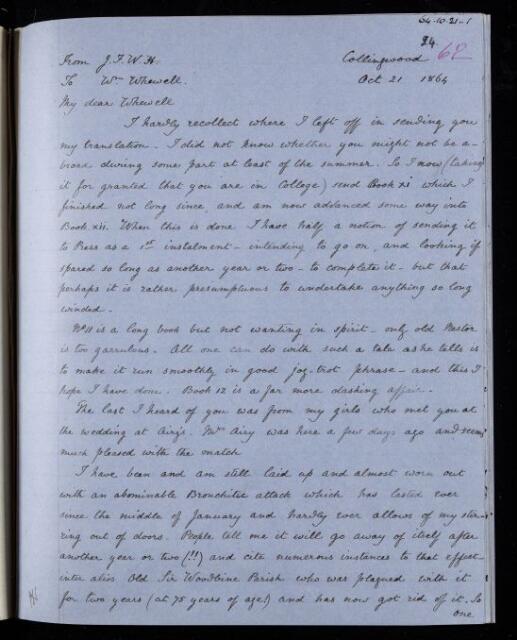 64-10-21-1
24. 68
From J.F.W.H. Collingwood
To Wm Whewell. Oct 21 1864
My dear Whewell
I hardly recollect where I left off in sending you
my translation. I did not know whether you might not be a-
broad during some part at least of the summer. So I now (taking
it for granted that you are in College) send Book XI which I
finished not long since and am now advanced some way into
Book XII. When this is done I have half a notion of sending it
to Press as a 1st instalment - intending to go on, and looking if
spared so long as another year or two - to complete it - but that
perhaps it is rather presumptuous to undertake anything so long
winded.
No 11 is a long book but not wanting in spirit - only old Nestor
is too garrulous. All one can do with such a tale as he tells is
to make it run smoothly in good jog-trot phrase - and this I
hope I have done. Book 12 is a far more dashing affair.
The last I heard of you was from my girls who met you at
the wedding at Airy's. Mrs Airy was here a few days ago and seems
much pleased with the match
I have been and am still laid up and almost worn out
with an abominable Bronchitic attack which has lasted ever
since the middle of January and hardly ever allows of my stir-
ring out of doors. People tell me it will go away of itself after
another year or two (!!) and cite numerous instances to that effect -
inter alios Old Sir Woodbine Parish who was plagued with it
for two years (at 75 years of age!) and has now got rid of it. So
one